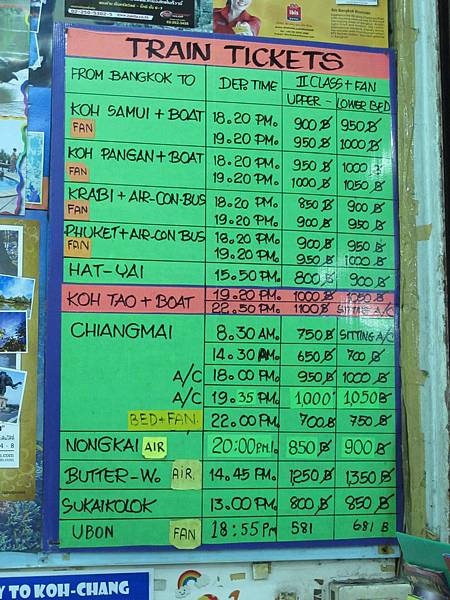 TRAIN TICKETS
FROM BANGKOK TO DEP. TIME II CLASS + FAN
UPPER - LOWER BED
KOH SAMUI + BOAT 18.20 PM. 900 ฿ 950 ฿
FAN 19.20 PM. 950 ฿ 1000 ฿
KOH PANGAN + BOAT 18.20 PM. 950 ฿ 1000 ฿
FAN 19.20 PM. 1000 ฿ 1050 ฿
KRABI + AIR-CON-BUS 18.20 PM. 850 ฿ 900 ฿
FAN 19.20 PM. 900 ฿ 950 ฿
PHUKET + AIR-CON BUS 18.20 PM. 900 ฿ 950 ฿
FAN 19.20 PM. 950 ฿ 1000 ฿
HAT-YAI 15.50 PM. 800 ฿ 900 ฿
KOH TAO + BOAT 19.20 PM. 1000 ฿ 1050 ฿
22.50 PM. 1100 ฿ SITTING A/C
CHIANGMAI 8.30 AM. 750 ฿ SITTING A/C
14.30 AM. 650 ฿ 700 ฿
A/C 18.00 PM. 950 ฿ 1000 ฿
A/C 19.35 PM. 1,000 1,050 ฿
BED + FAN. 22.00 PM. 700 ฿ 750 ฿
NONGKAI AIR 20:00 PM. 850 ฿ 900 ฿
BUTTER-W. AIR 14.45 PM. 1250 ฿ 1,350 ฿
SUKAIKOLOK 13.00 PM. 800 ฿ 850 ฿
UBON FAN 18:55 PM 581 681 ฿
Y TO KOH-CHANG